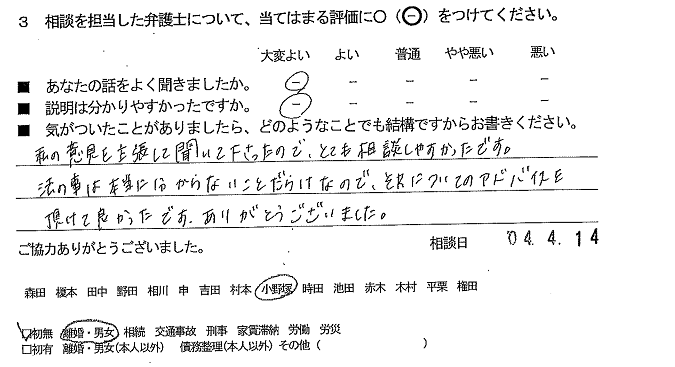 3 相談を担当した弁護士について、当てはまる評価に○(㊀)をつけてください。
大変よい よい 普通 やや悪い 悪い
■ あなたの話をよく聞きましたか。 － － － － －
■ 説明は分かりやすかったですか。 － － － － －
■ 気がついたことがありましたら、どのようなことでも結構ですからお書きください。
私の意見を主張して聞いて下さったので、とても相談しやすかったです。
法の事は本当に分からないことだらけなので、それについてのアドバイスを
頂けて良かったです。ありがとうございました。
ご協力ありがとうございました。 相談日 '04.4.14
森田 榎本 田中 野田 相川 申 吉田 村本 小野塚 時田 池田 赤木 木村 平栗 権田
□初無 離婚・男女 相続 交通事故 刑事 家賃滞納 労働 労災
□初有 離婚・男女(本人以外) 債務整理(本人以外) その他( )